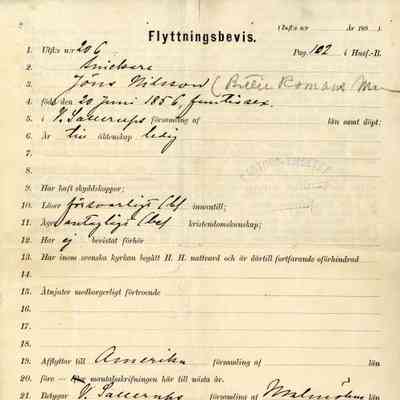 Flyttningsbevis.
1. Utfl: n:r 206 Pag. 102 i Husf.-B.
2. Snickare
3. Jöns Nilsson
4. född den 20 Juni 1856, femtiosex
5. i V. Sallerups församling af län samt döpt;
6. Är till äktenskap ledig
7.
8.
9. Har haft skyddskoppor;
10. Läser försvarligt i bok innantill;
11. Äger antaglig kristendomskunskap;
12. Har ej bevistat förhör
13. Har inom svenska kyrkan begått H. H. nattvard och är därtill fortfarande oförhindrad
14.
15. Åtnjuter medborgerligt förtroende
16.
17.
18.
19. Afflyttar till Amerika församling af län
20. före — mantalsskrifningen här till nästa år.
21. Betygar V. Sallerups församling af Malmöhus län